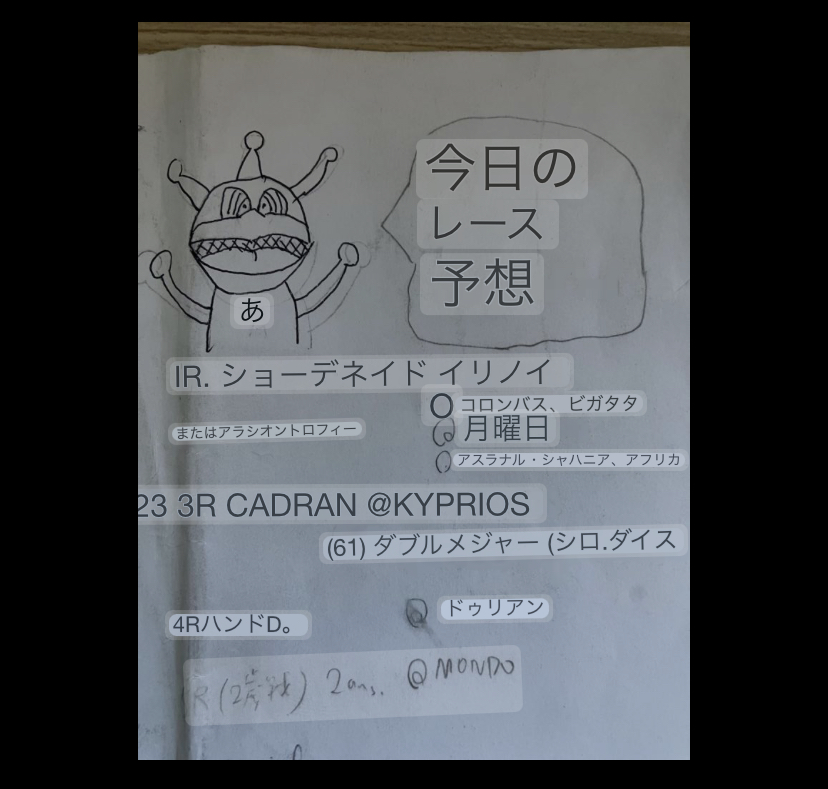 今日の
レース
予想
あ
IR. ショーデネイド イリノイ
O コロンバス、ビガタタ
またはアラシオントロフィー
◎ 月曜日
アスラナル・シャハニア、アフリカ
23 3R CADRAN @KYPRIOS
(61) ダブルメジャー (シロ.ダイス
ドゥリアン
4RハンドD。
R (2歳戦) 2ans. @MONDO